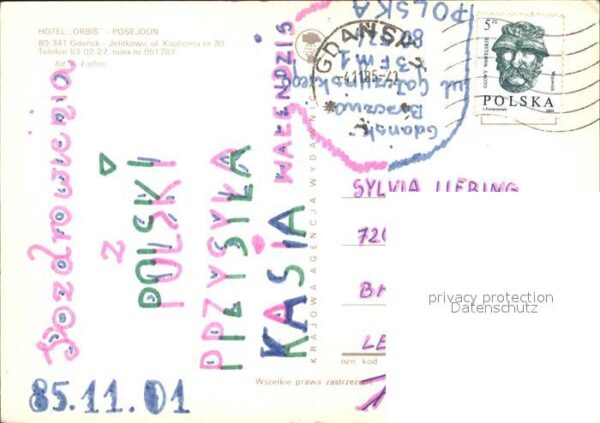 HOTEL „ORBIS" - POSEJDON
80-341 Gdańsk - Jelitkowo, ul. Kapliczna nr 30
Telefon 53-02-27, telex nr 051783
fot
Pozdrowienia
z
POLSKI
PRZYSYŁA
KASIA WALENDZIS
85.11.01
KRAJOWA AGENCJA WYDAWNICZA
Gdańsk
ul
13 F m 1
80-
POLSKA
GDAŃSK
5 zł
GŁOWY WAWELSKIE
POLSKA
SYLVIA UEBING
720
B
LE
ozn kod
Wszelkie prawa zastrzeż
privacy protection
Datenschutz